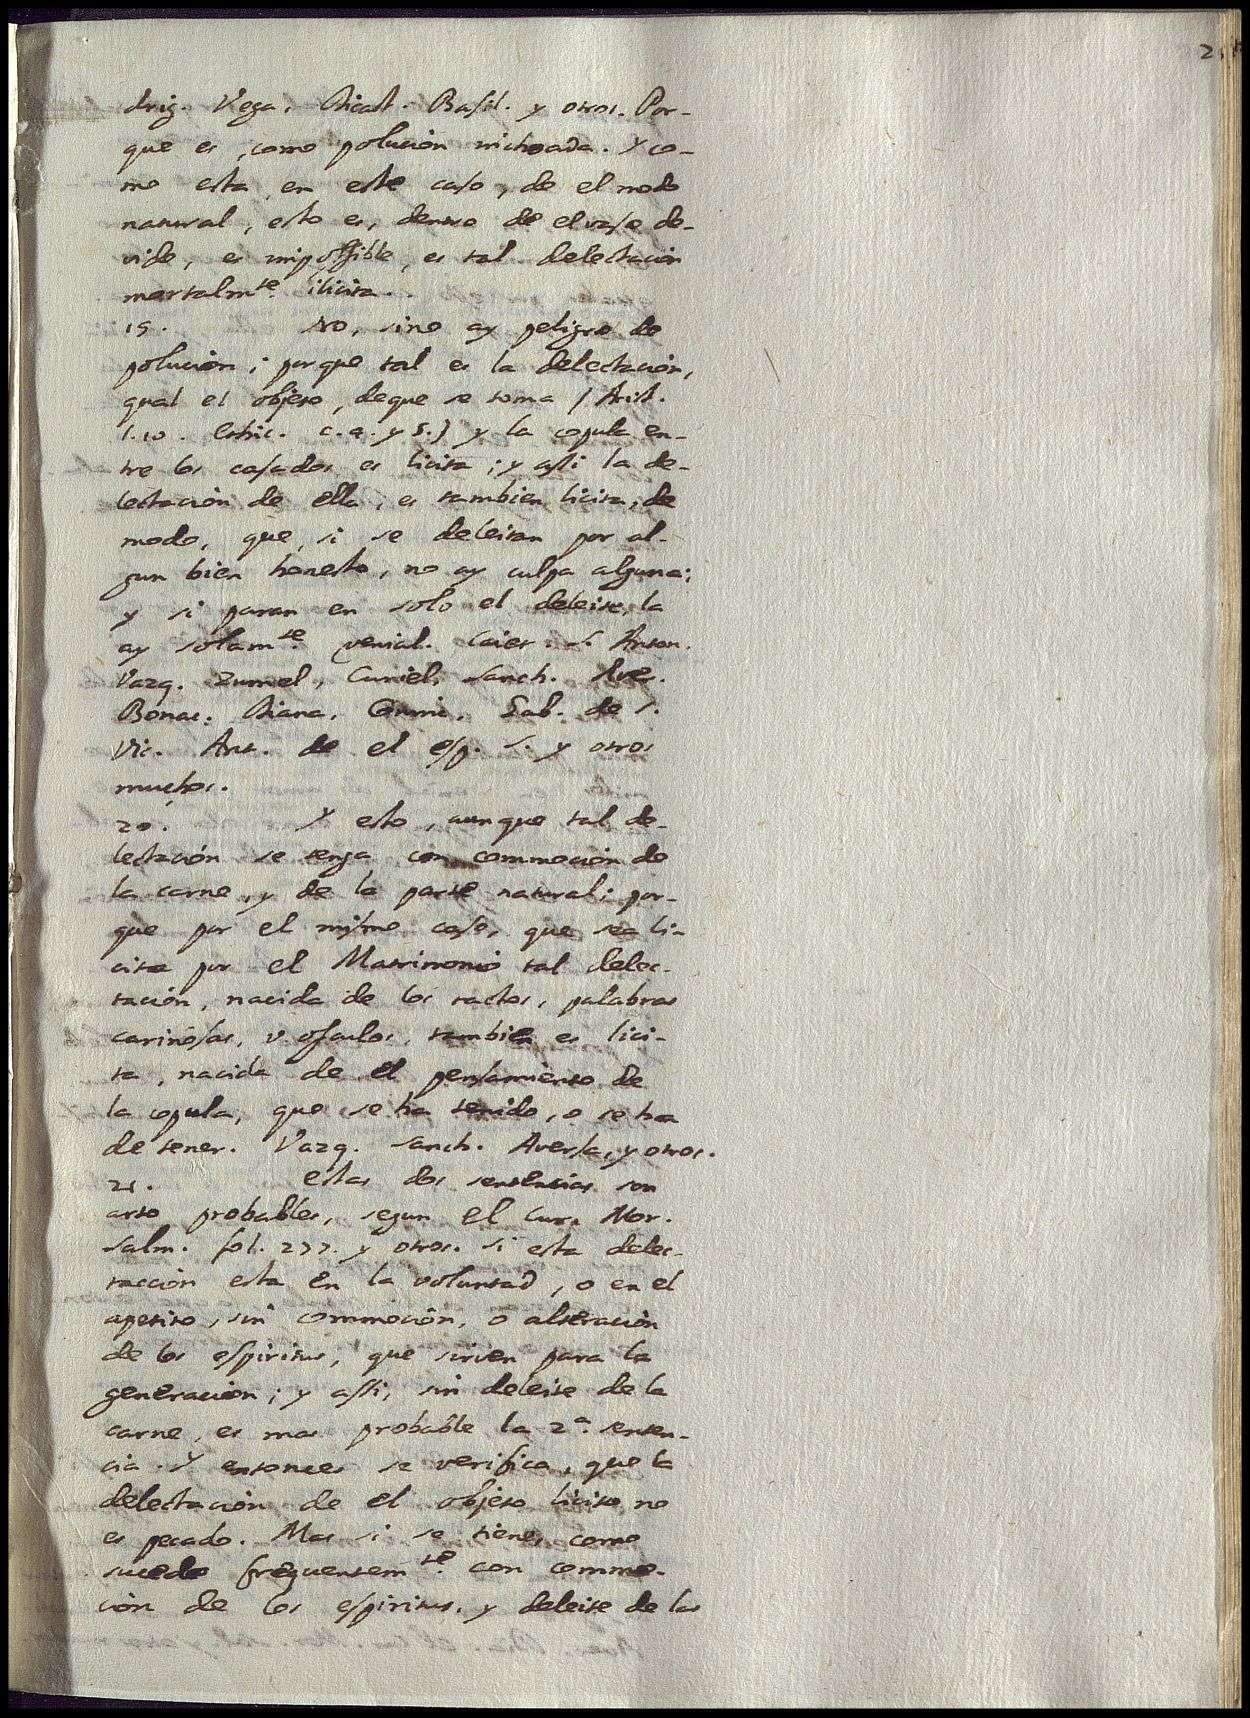 drig. Vega. Dicast. Basil. y otros. Por-
que es, como polucion inchoada. Y co-
mo esta, en este caso, de el modo
natural, esto es, dentro de el vaso de-
vido, es impossible, es tal delectacion
mortalmte. ilicita.
19. No, sino ay peligro de
polucion; porque tal es la delectacion,
qual el objeto, deque se toma (Arist.
l. 10. Ethic. c. 4. y 5.) y la copula en-
tre los casados es licita; y assi la de-
lectacion de ella, es tambien licita, de
modo, que, si se deleitan por al-
gun bien honesto, no ay culpa alguna;
y si paran en solo el deleite, la
ay solamte. venial. Caiet. S. Anton.
Vazq. Zumel, Curiel, Sanch. Aver.
Bonac. Diana. Gab. de S.
Vic. Ant. de el esp. S. y otros
muchos.
20. Y esto, aunque tal de-
lectacion se tenga con commocion de
la carne, y de la parte natural; por-
que por el mismo caso, que sea li-
cita por el Matrimonio tal delec-
tacion, nacida de los tactos, palabras
cariñosas, v osculos, tambien es lici-
ta, nacida de el pensamiento de
la copula, que se ha tenido, o se ha
de tener. Vazq. Sanch. Aversa, y otros.
21. Estas dos sentencias son
arto probables, segun el Cur. Mor.
Salm. fol. 277. y otros. Si esta delec-
taccion esta en la voluntad, o en el
apetito, sin commocion, o alteracion
de los espiritus, que sirven para la
generacion; y assi, sin deleite de la
carne, es mas probable la 2a. senten-
cia. Y entonces se verifica, que la
delectacion de el objeto licito no
es pecado. Mas si se tiene, como
sucede frequentemte. con commo-
cion de los espiritus, y deleite de la